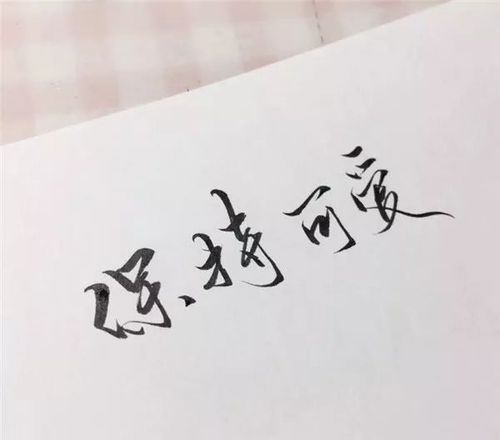 保持可爱